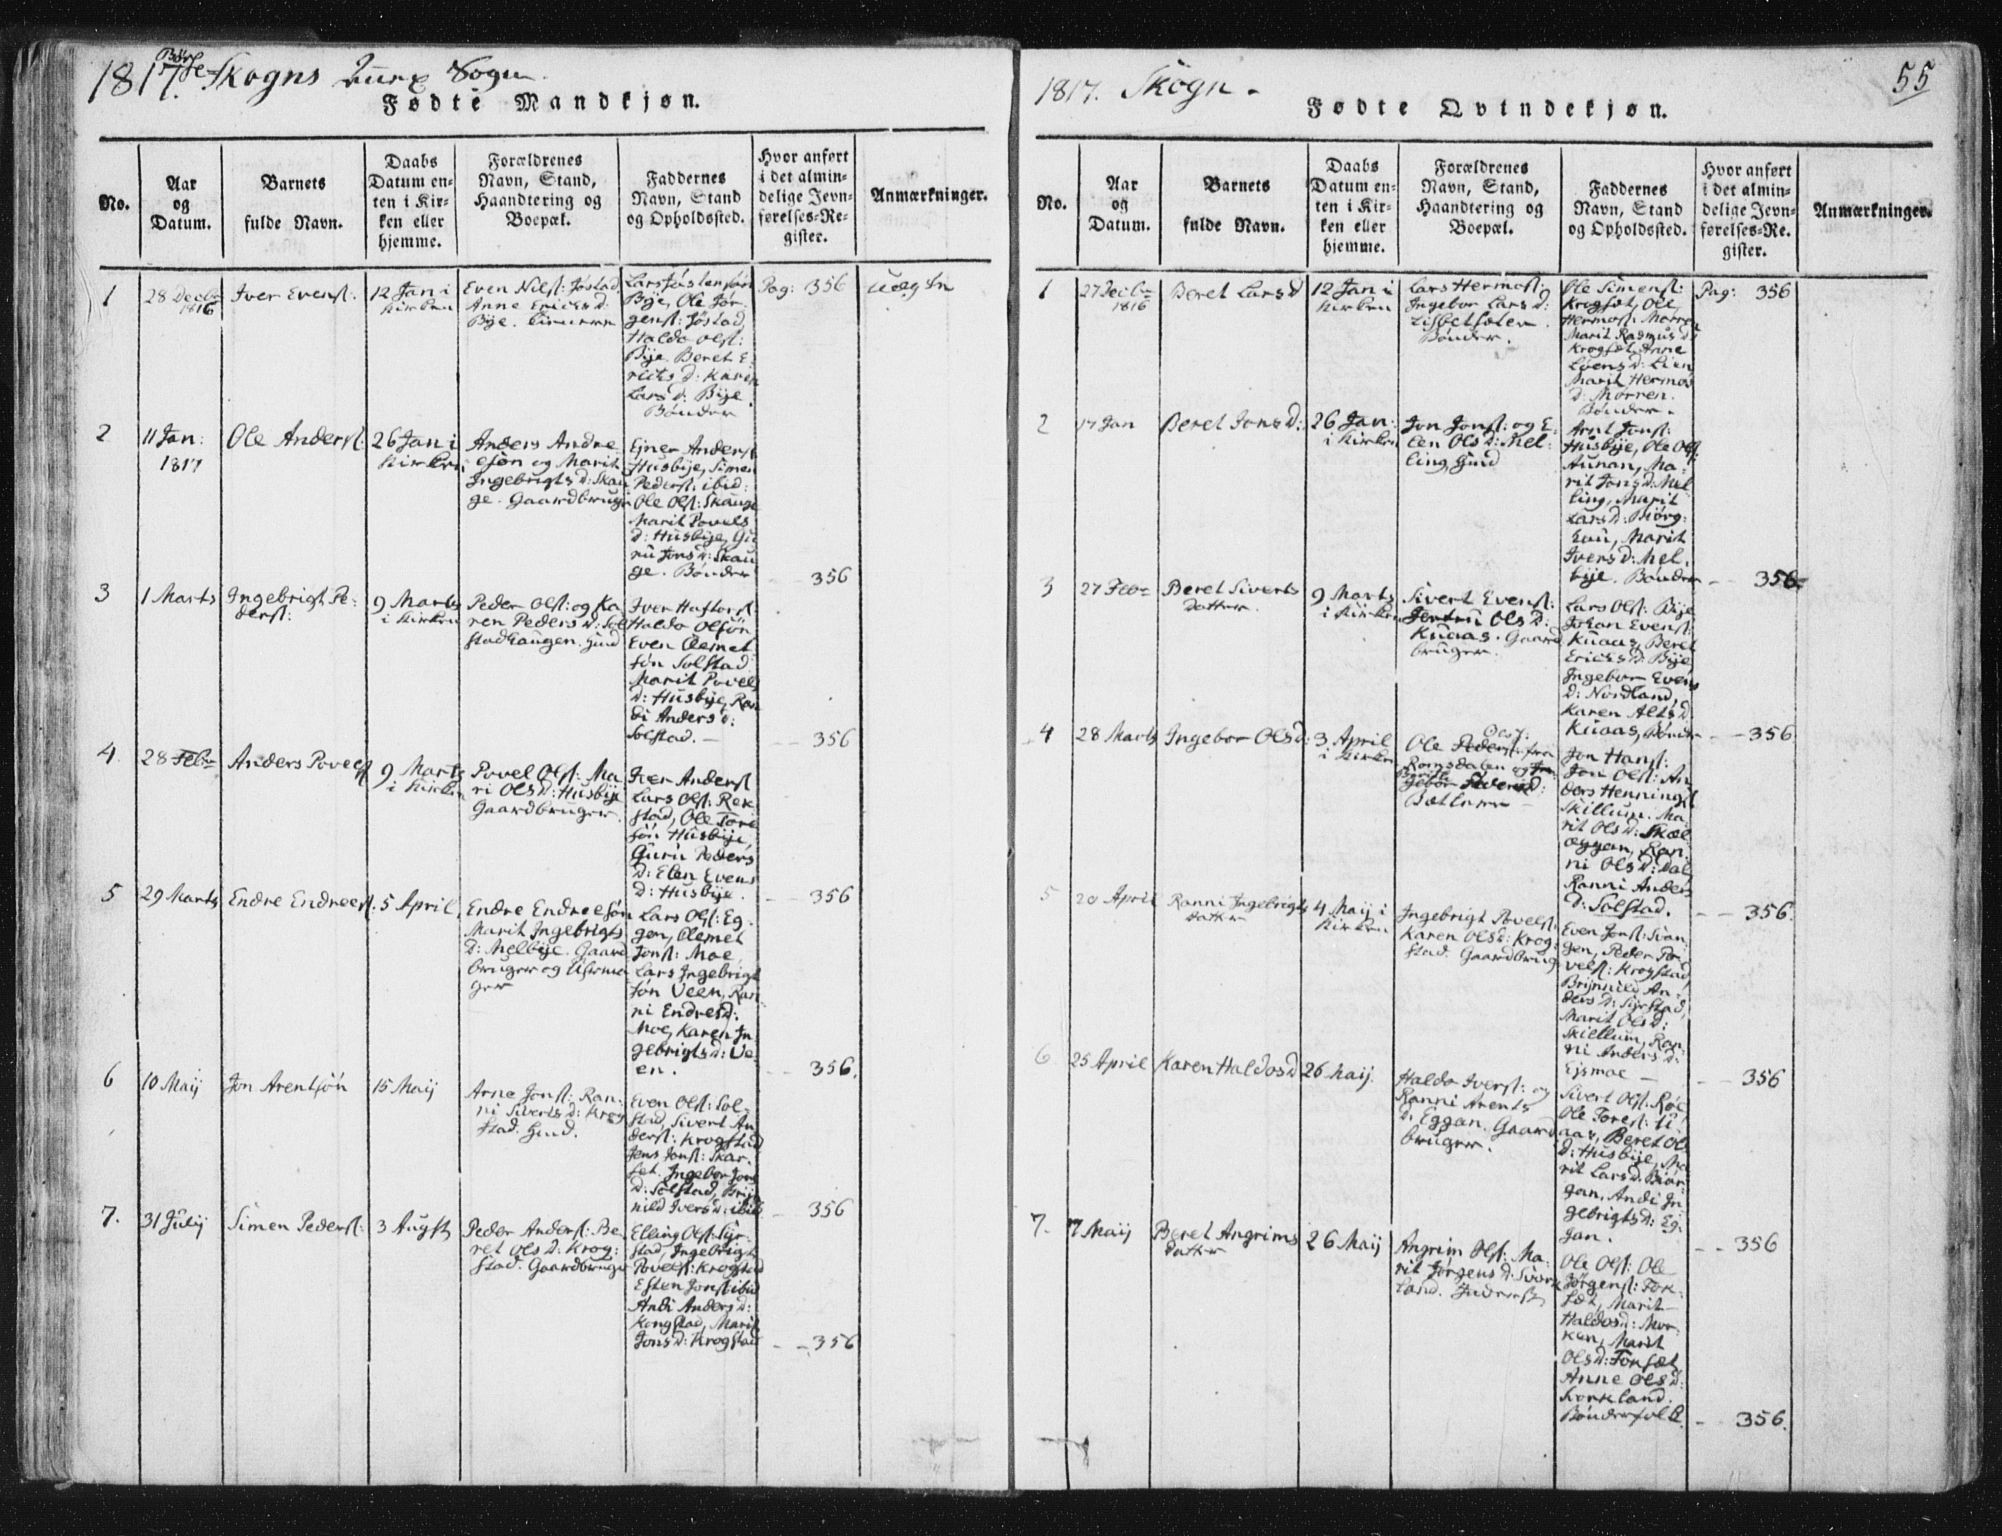 1817. Børse Skogns Sogn
Fødte Mandkjøn.
No.
Aar
og
Datum.
Barnets
fulde Navn.
Daabs
Datum en-
ten i Kir-
ken eller
hjemme.
Forældrenes
Navn, Stand,
Haandtering og
Boepæl.
Faddernes
Navn, Stand
og Opholdssted.
Hvor anført
i det almin-
delige Jevn-
førelses-Re-
gister.
Anmærkninger.
1
28 Decbr
1816
Iver Evens:
12 Jan i
Kirken
Even Nils: Jøstad
Anne Ericks d:
Bye.
Lars Jøstensøn
Bye, Ole Jør-
gens: Jøstad
Haldo Ols:
Bye Beret E-
ricks d: Karen
Lars d: Bye
Bønder
Pag: 356
2
11 Jan:
1817
Ole Anders:
26 Jan i
Kirken
Anders Andre-
esøn og Marit
Ingebrigts d: Skau
ge. Gaardbruger
Ejner Anders:
Husbye, Simen
Peders: ibid:
Ole Ols: Skauge
Marit Povels
d: Husbye, Gu
ru Jons d: Skau
ge. Bønder
356
3
1 Marts
Ingebrigt Pe-
ders:
9 Marts
i Kirken
Peder Ols: og Ka
ren Peders d: Sol
stadhaugen. Huusmd
Iver Haftors:
Haldo Olsøn
Even Clemet
søn Solstad
Marit Povels
d: Husbye, Ran
di Anders d:
Solstad.
356
4.
28 Febr
Anders Povels:
9 Marts
i Kirken
Povel Ols: Ma
ri Ols d: Husbye
Gaardbruger
Iver Anders:
Lars Ols: Rek
stad, Ole Tore
søn Husbye,
Guru Peders
d: Elen Evens
d: Husbye.
356
5
29 Marts
Endre Endrees:
5 April
Endre Endreesøn
Marit Ingebrigts
d: Melbye. Gaard
bruger og Uhrma
ger
Lars Ols: Eg-
gen, Clemet
Jons: Moe,
Lars Ingebrigt
søn Veen, Ran-
ni Endres d:
Moe, Karen In
gebrigts d: Ve-
en.
356.
6
10 Maij
Jon Arentsøn
15 Maij
Arne Jons: Ran-
ni Siverts d: Krog
stad.
Even Ols: Sol-
stad, Sivert An
ders: Krogstad
Jens Jons: Skar-
set. Ingebor Jons
d: Solstad, Brÿn
nild Ivers d: ibid
356
7.
31 Julij
Simen Peders:
3 Augst
Peder Anders: Be-
ret Ols d: Krog:
stad. Gaardbruger
Elling Ols: Syr-
stad, Ingebrigt
Povels: Krogstad
Esten Jons: ibid
Andi Anders d:
Krogstad, Marit
Jons d: Krogstad
356
1817. Skogn
55
Fødte Qvindekjøn.
No.
Aar
og
Datum.
Barnets
fulde Navn.
Daabs
Datum en-
ten i Kir-
ken eller
hjemme.
Forældrenes
Navn, Stand,
Haandtering og
Boepæl.
Faddernes
Navn, Stand
og Opholdssted.
Hvor anført
i det almin-
delige Jevn-
førelses-Re-
gister.
Anmærkninger.
1
27 Decbr
1816
Beret Lars d
12 Jan i
Kirken
Lars Hermos:
Ingebor Lars d:
Lisbetsæter
Bønder.
Ole Simens:
Krogset, Ole
Hermos: Morren
Marit Rasmus d:
Krogset, Anne
Loens d: Lien
Marit Hermos
d: Morren.
Bønder.
Pag: 356
2
17 Jan
Beret Jons d:
26 Jan:
i Kirken
Jon Jons: og E-
len Ols d: Mel-
ling,
Arnt Jons:
Husbye, Ole Ols:
Aunan, Ma-
rit Jons d: Mel
ling, Marit
Lars d: Biørg:
Eun, Marit
Ivers d: Mel-
bye. Bønder
356
3
27 Febr
Beret Siverts
datter
9 Marts
i Kirken
Sivert Evens:
Ols d:
Kuaas. Gaard
bruger.
Lars Ols: Bye
Johan Evens:
Kuaas, Beret
Ericks d: Bye
Ingebor Evens
d: Nordland,
Karen Alts d:
Kuaas, Bønder
356
4
28 Marts
Ingebor Ols d:
3 April
i Kirken
Ols:
Ole Peders: fra
Romsdalen og In-
Berith
gebor d:
Betlere
Jon Hans:
Jon Ols: An
ders Hennings:
Skillum. Ma-
rit Ols d: Skæl
eggan, Ran-
ni Ols d: Dal
Ranni Anders
d: Solstad.
356.
5
20 April
Ranni Ingebrigts
datter
4 Maij i
Kirken
Ingebrigt Povels:
Karen Ols d: Krog-
stad. Gaardbrug
Even Jons: Svan-
gen, Peder Po-
vels: Krogstad
Brÿnnild An-
ders d: Syrstad,
Marit Ols d:
Skillum, Ran
ni Anders d:
Ejsmoe
356
6
25 April
Karen Haldos d
26 Maij
Haldo Ivers: og
Ranni Arents
d: Eggan. Gaard
bruger.
Sivert Ols: Røe
Ole Tores: Li
aas, Beret Ols
d: Husbye, Ma
rit Lars d: Biør-
gan, Andi In
gebrigts d: Eg-
gan.
356
7.
7 Maij
Beret Angrims
datter
26 Maij
Angrim Ols: Ma-
rit Jørgens d: Svork
land.
Ole Ols: Ole
Jørgens: Fok-
set, Marit
Haldos d: Mor-
ken, Marit
Ols d: Fonset
Anne Ols d:
Korkland.
Bønderfolk.
356.